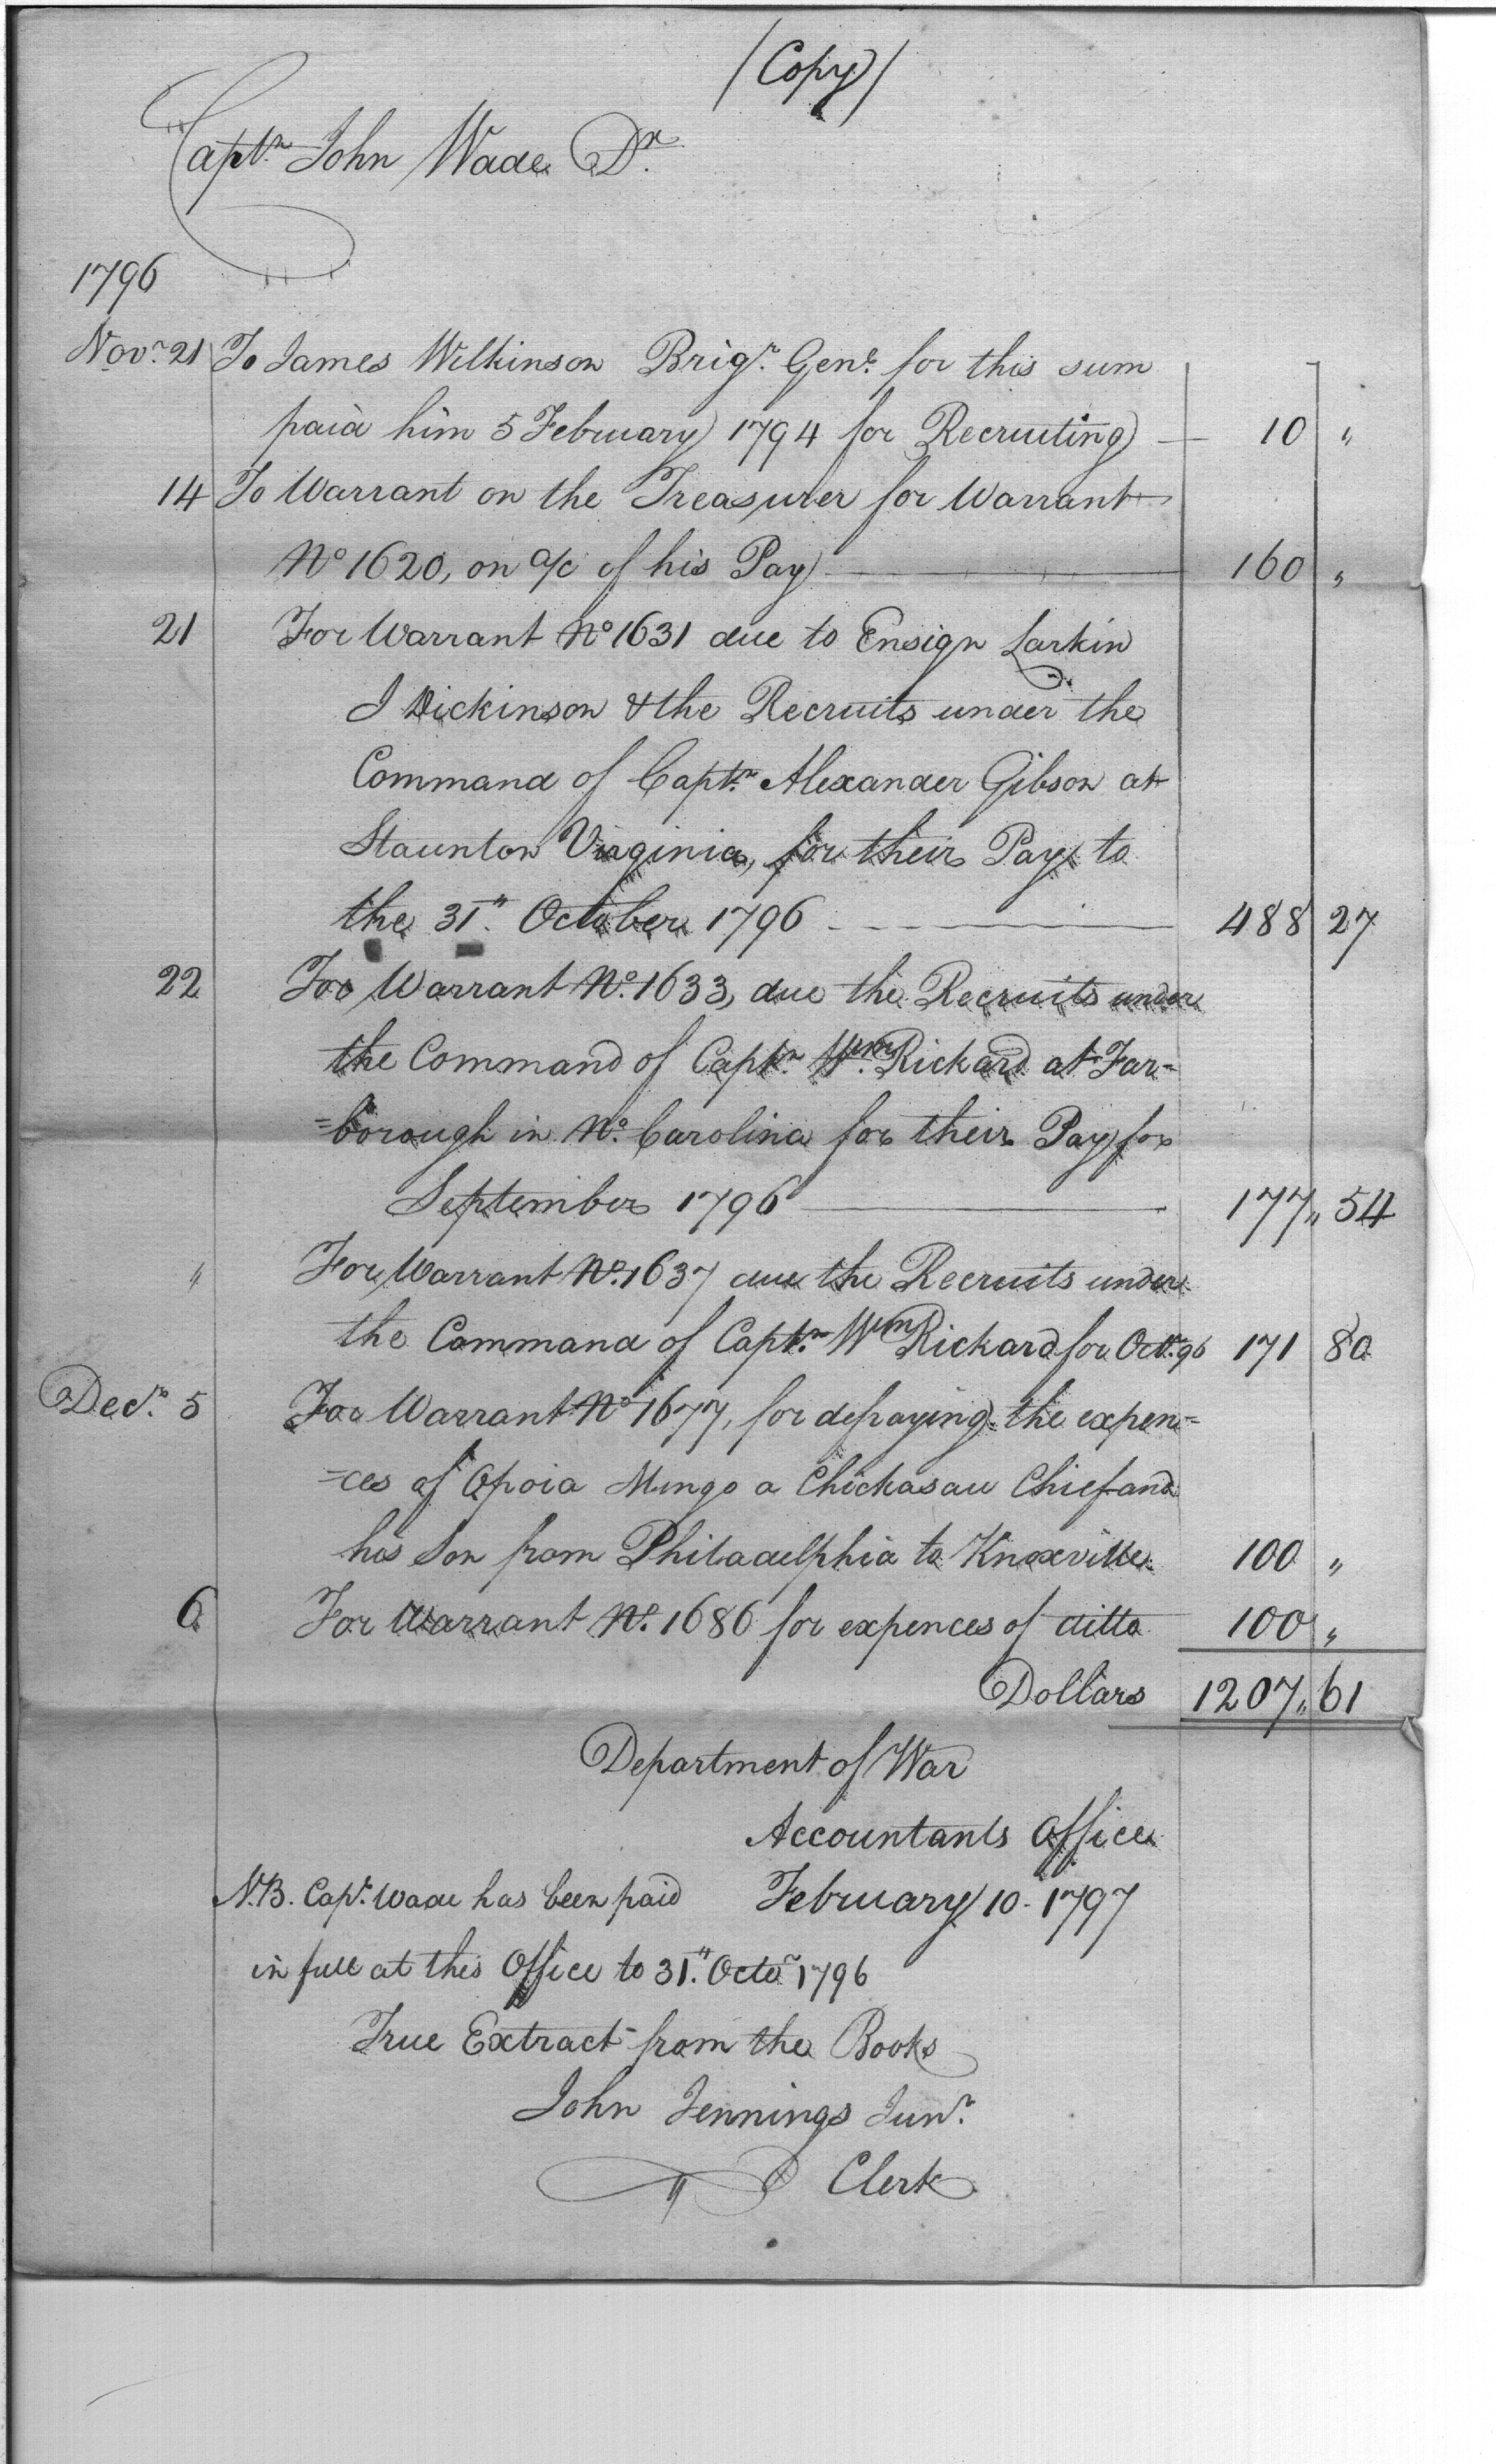 (Copy)
Captn. John Wade Dr.
1796
Novr. 21 To James Wilkinson Brigr. Genl. for this sum
paid him 5 February 1794 for Recruiting 10 "
14 To Warrant on the Treasurer for Warrant
No 1620, on a/c of his Pay 160 "
21 For Warrant No 1631 due to Ensign Larkin
I Dickinson & the Recruits under the
Command of Captn. Alexander Gibson at
Staunton Virginia, for their Pay to
the 31st. October 1796 488 27
22 For Warrant No. 1633, due the Recruits under
the Command of Captn. Wm. Rickard at Tar=
=borough in No. Carolina for their Pay for
September 1796 177 " 54
" For Warrant No. 1637 due the Recruits under
the Command of Captn. Wm Rickard for Octr. 96 171 80
Decr. 5 For Warrant No 1677, for defraying the expen=
=ces of Opoia Mingo a Chickasau Chief and
his Son from Philadelphia to Knoxville. 100 "
6 For Warrant No. 1686 for expences of ditto 100 "
Dollars 1207 " 61
Department of War
Accountants Office
N.B. Capt. Wade has been paid February 10. 1797
in full at this Office to 31." Octor 1796
True Extract from the Books
John Jennings Junr.
Clerk